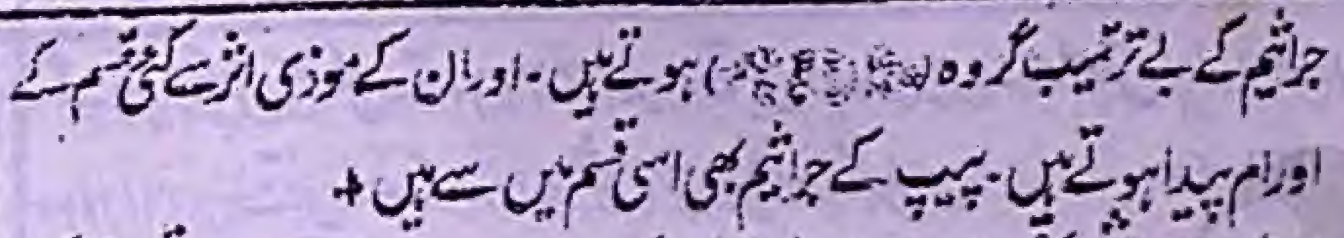 جراثیم کے بے ترتیب گروہ () ہوتے ہیں۔ اور ان کے موذی اثر سے کئی قسم کے
اورام پیدا ہوتے ہیں۔ پیپ کے جراثیم بھی اسی قسم میں سے ہیں +